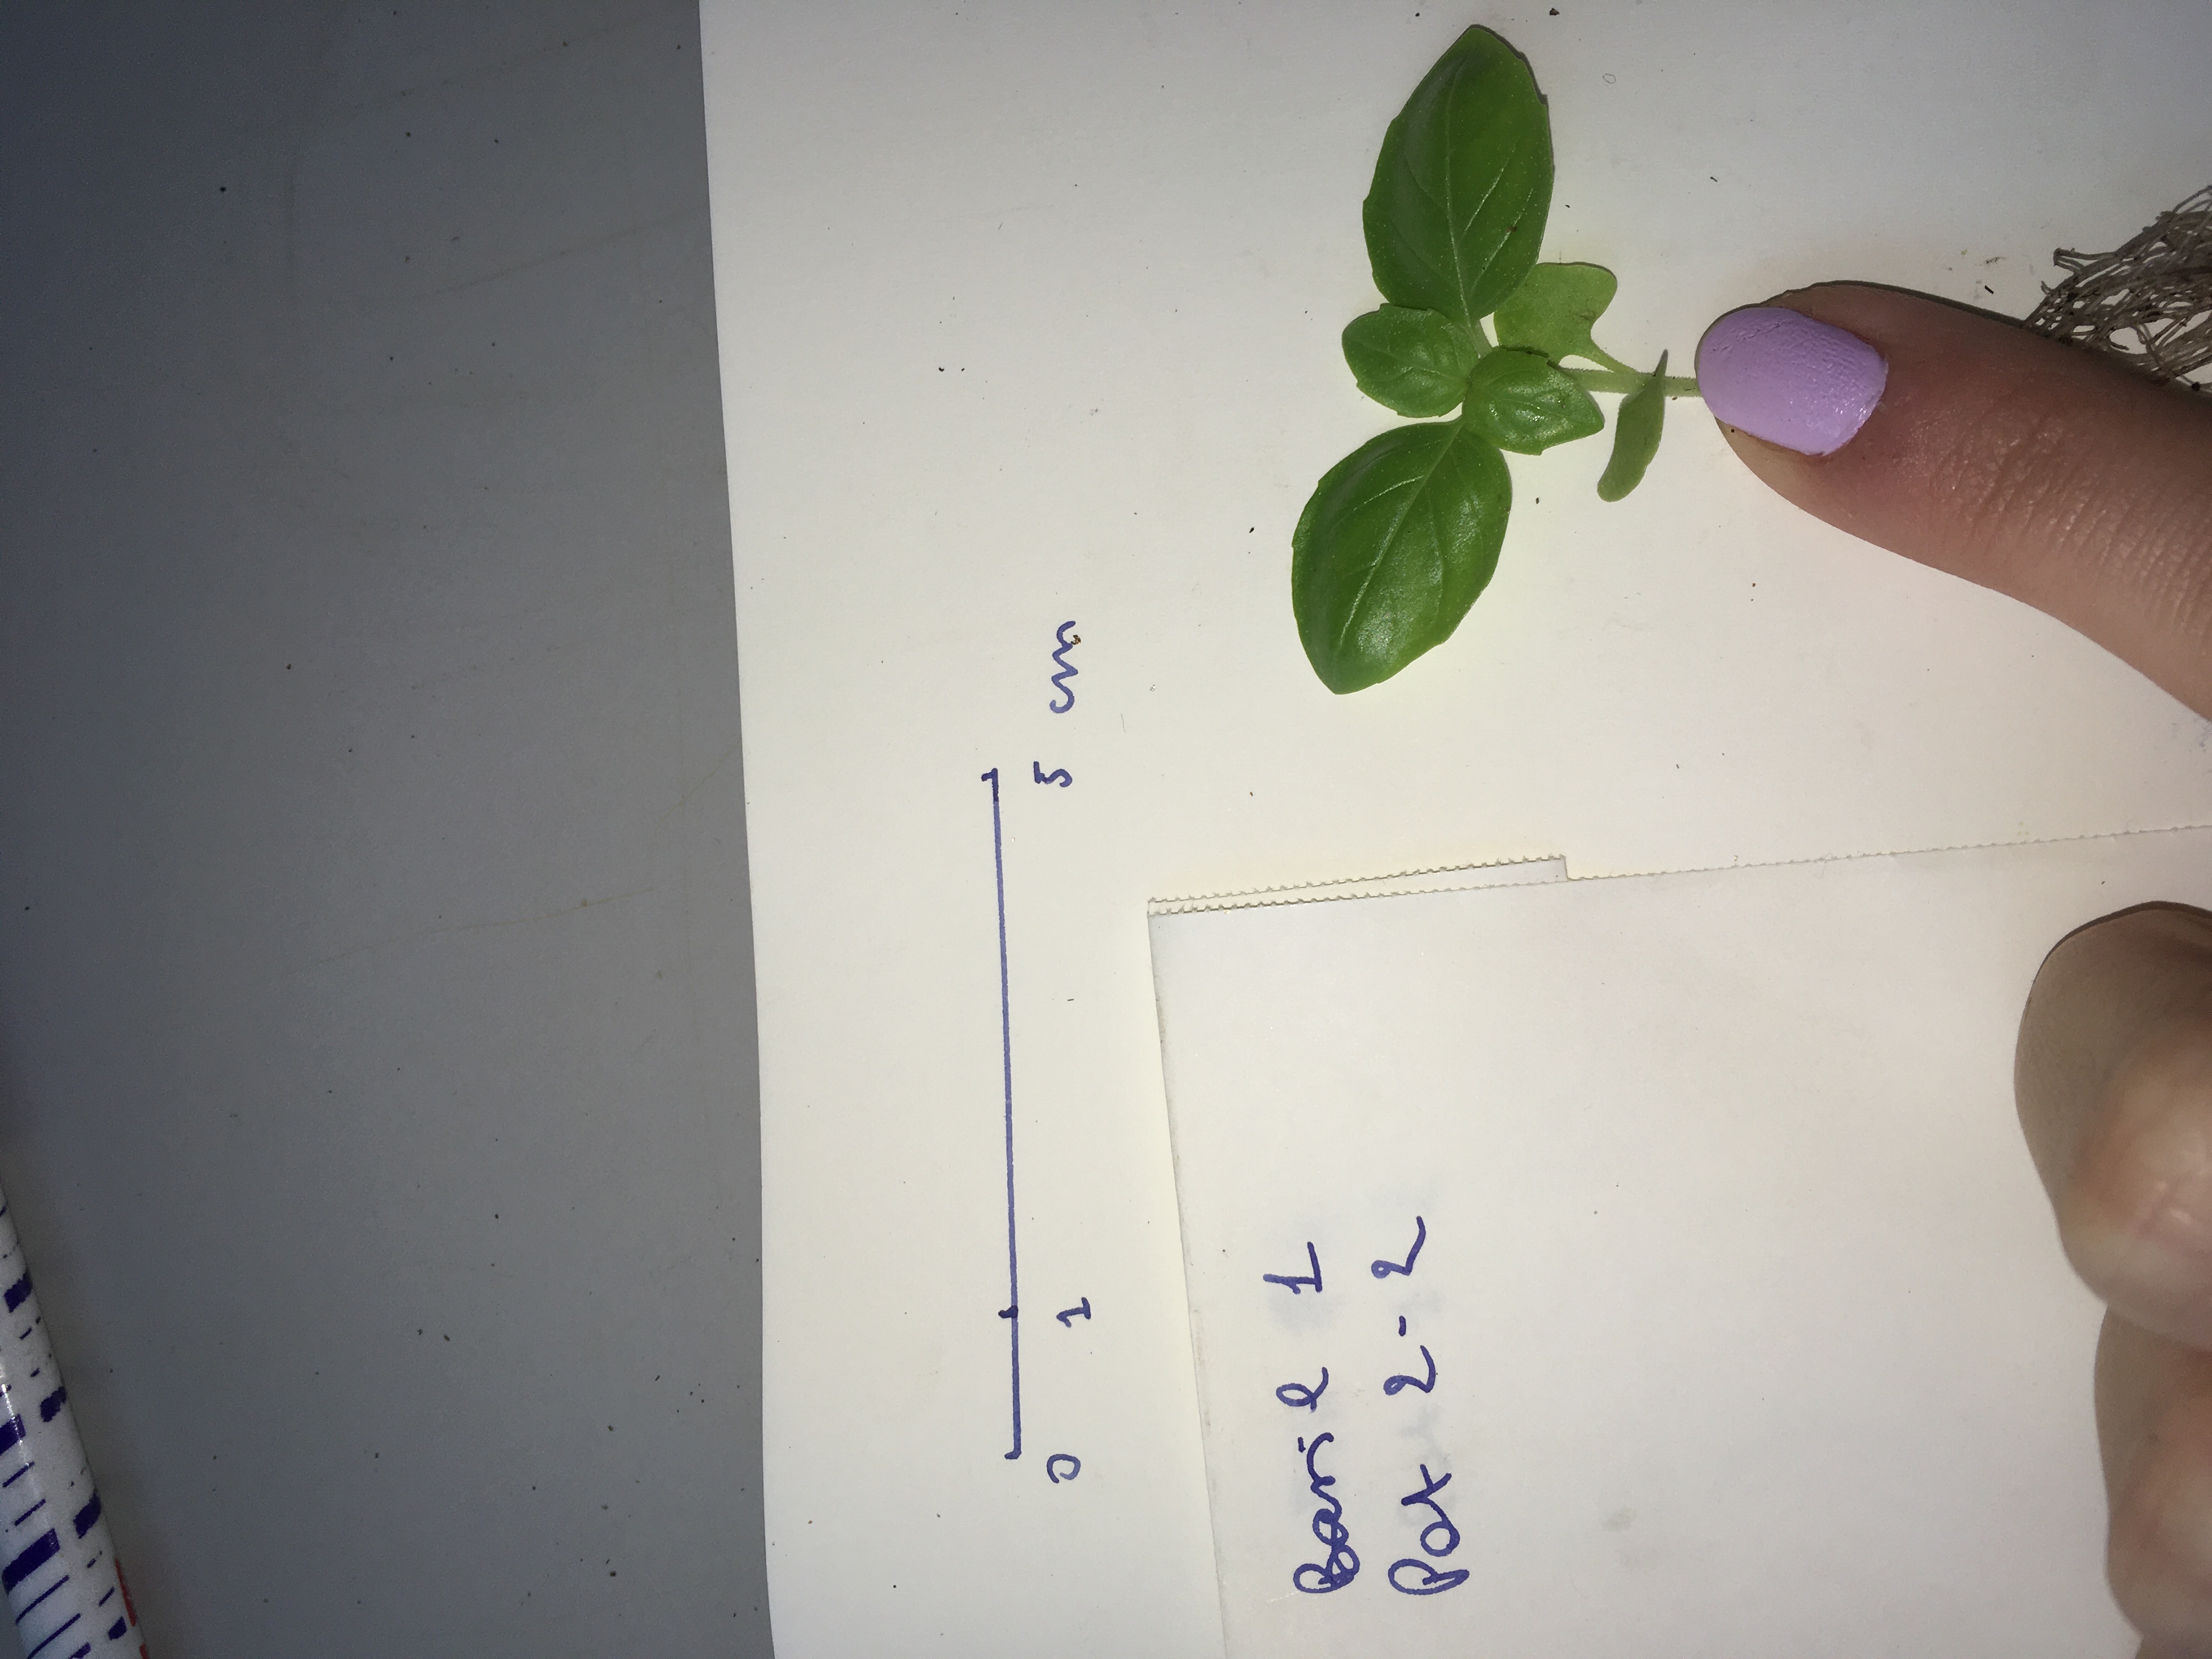 0 1 5 cm
Basil 1
Pot 2-2